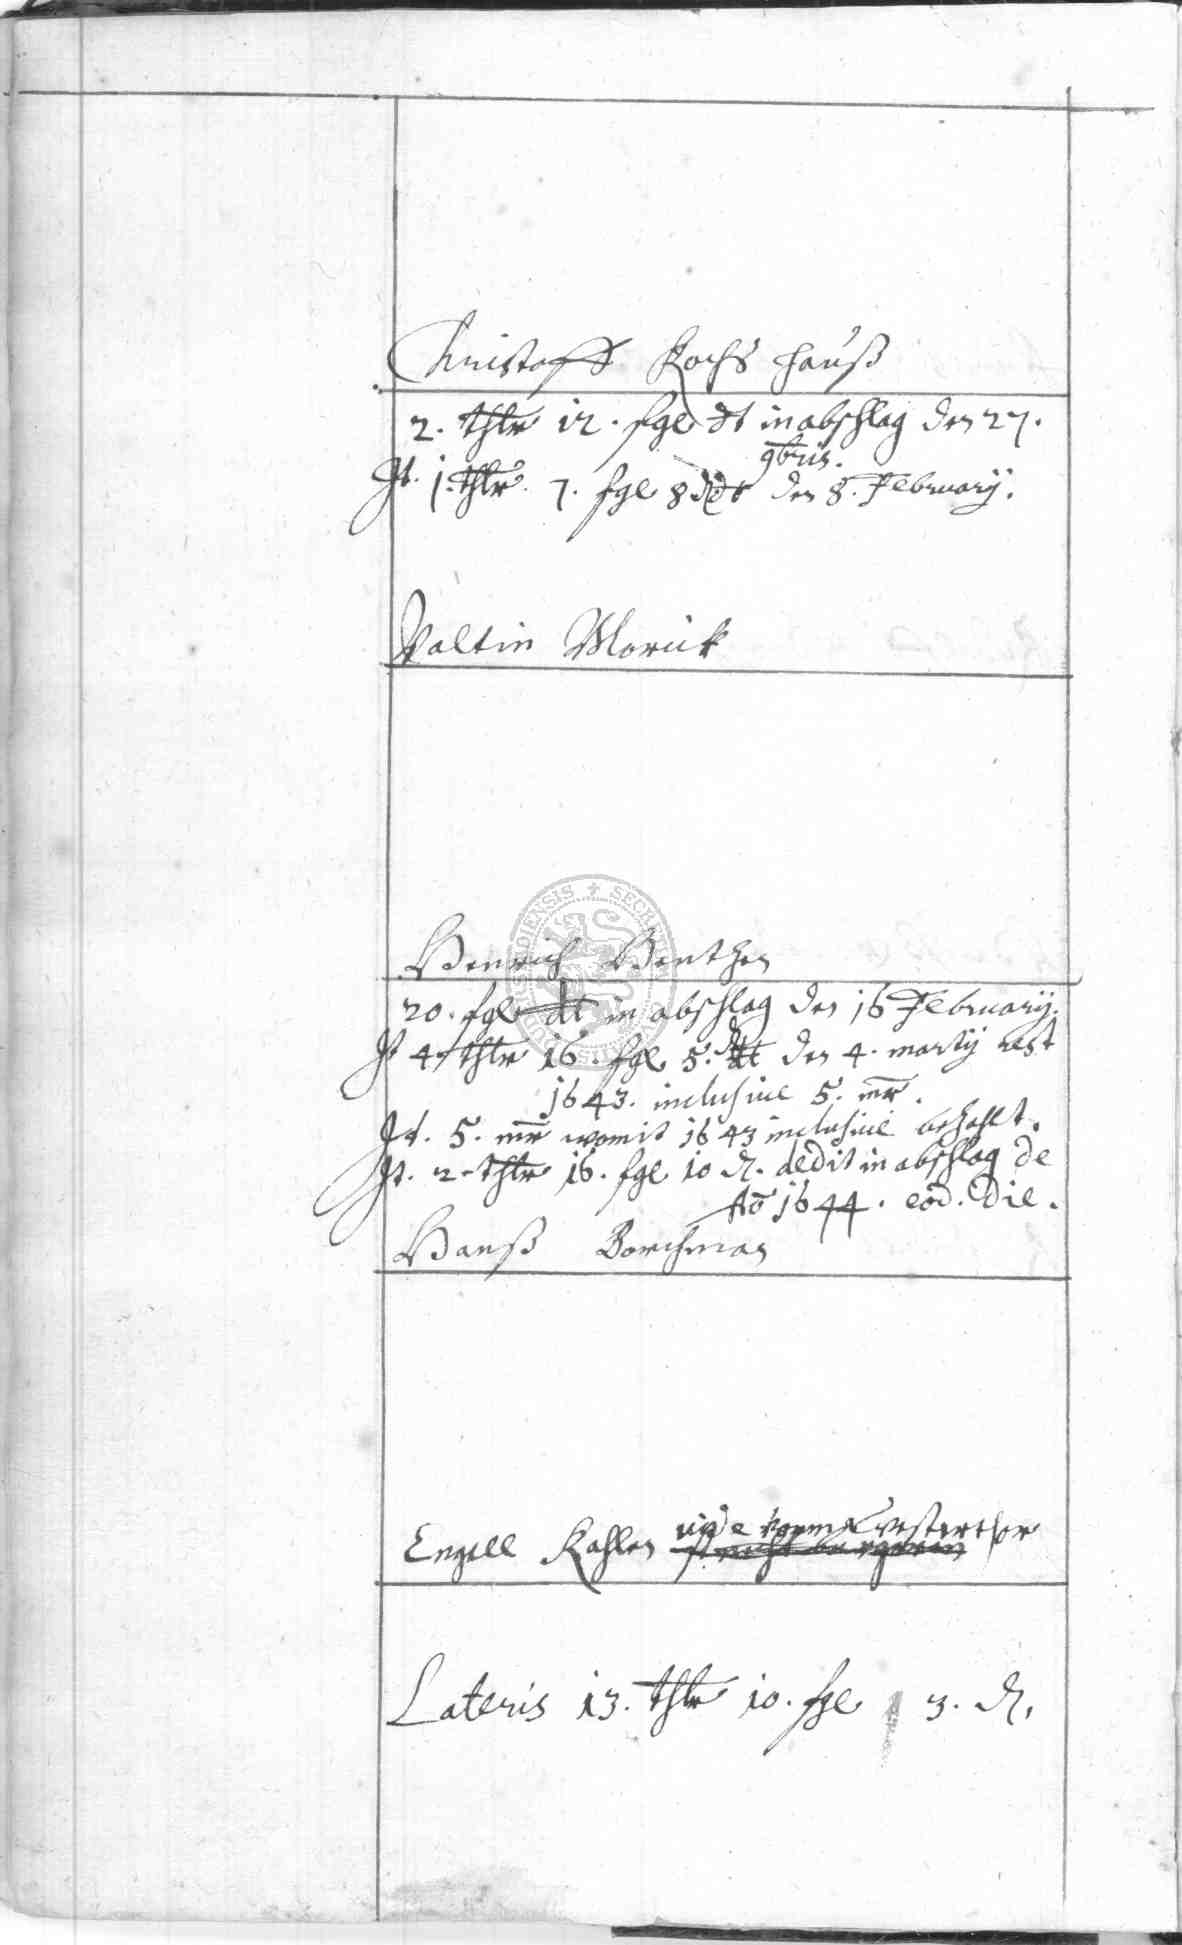 Christoff Kochs hauß
2. thlr 12. sgl dt in abschlag den 27.
9bris.
It. 1. thlr. 7. sgl 8 d dt den 8. February.
Valtin Morick
Henrich Benthen
20. sgl dt in abschlag den 16 February.
It 4 thlr 16. sgl 5. d dt den 4. martij rest
1643. inclusive 5. mr.
It. 5. mr womit 1643 inclusive bezahlt.
It. 2 thlr 16. sgl 10 d. dedit in abschlag de
Ao 1644. eod. die.
Hanß Borchman
Engell Kahlen vide vorm Westerthor
Lateris 13. thlr 10. sgl 3. d.
SECRETUM